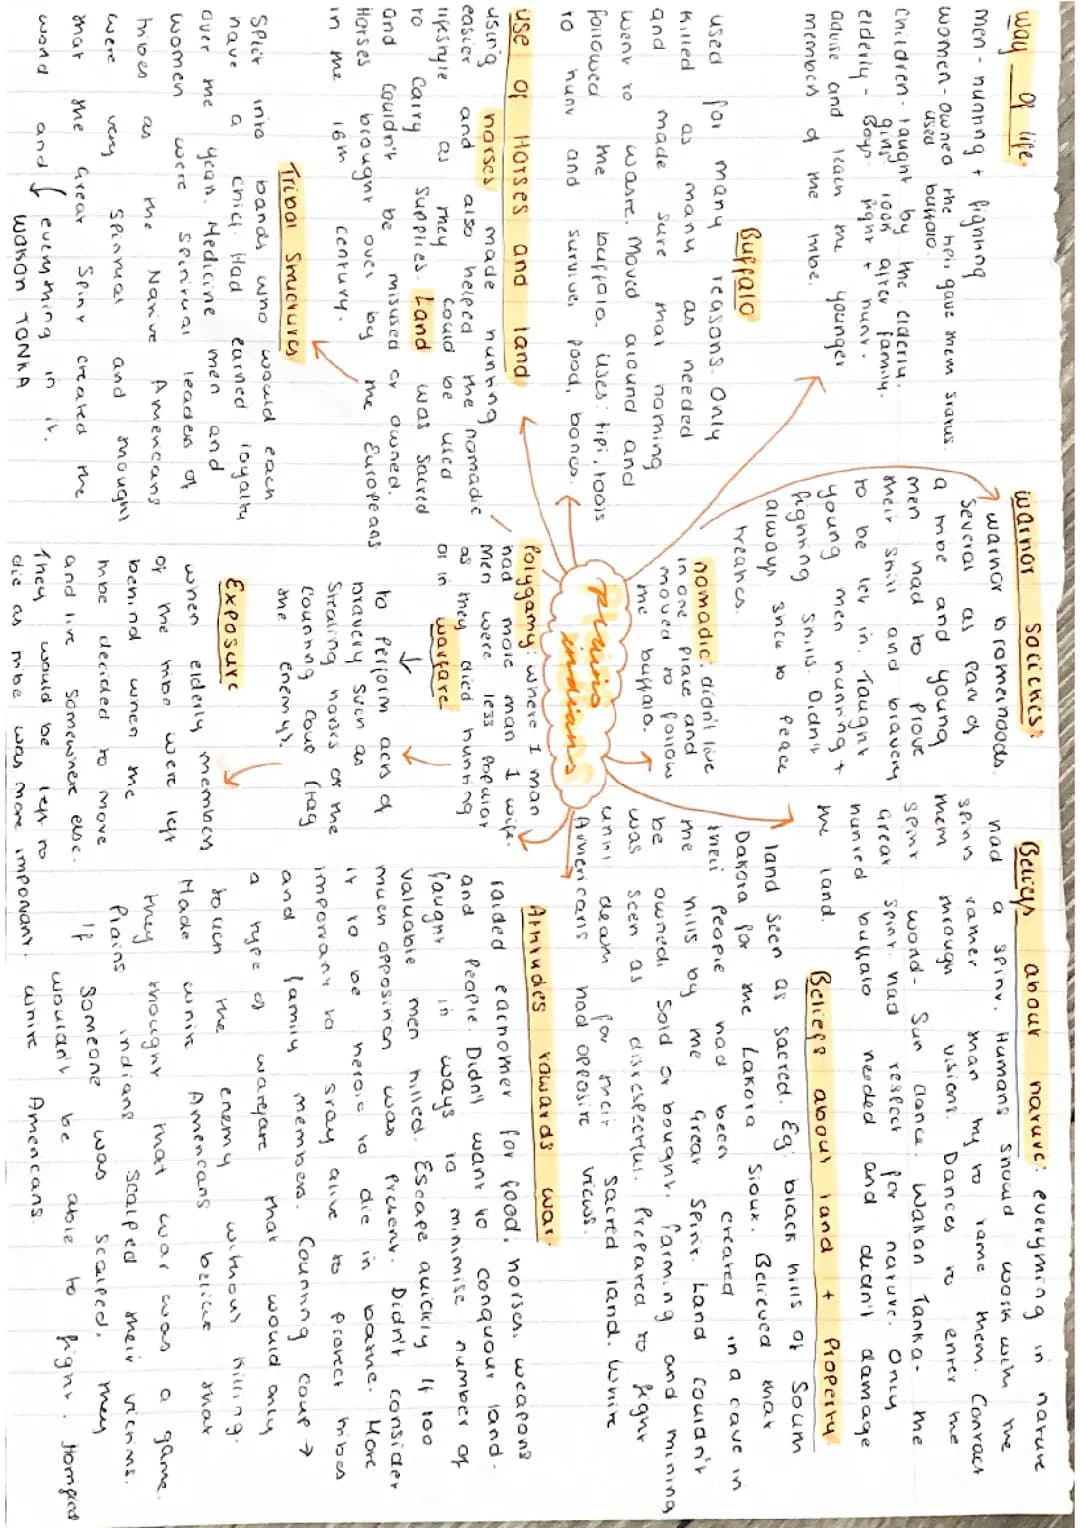 Way of life
men - hunting + fighting
women - owned the tipi, gave them status.
used buffalo.
Children - taught by the elderly.
girls look after family.
elderly - Boys fight + hunt.
advise and teach the younger
members of the tribe.
Buffalo
used for many reasons. Only
killed as many as needed
and made sure that nothing
went to waste. Moved around and
followed the buffalo. Uses: tipi, tools
to hunt and survive, food, bones.
Use of Horses and land
Using horses made hunting
easier and also helped the nomadic
lifestyle as they could be used
to carry supplies. Land was sacred
and couldn't be misused or owned.
Horses brought over by the Europeans
in the 16th century.
Tribal Structures
Split into bands who would each
have a chief. Had earned loyalty
over the years. Medicine men and
women were spiritual leaders of
tribes as the Native Americans
were very spiritual and thought
that the Great Spirit created the
world and everything in it.
WAKAN TONKA
Plains
indians
warrior societies:
warrior brotherhoods.
several as part of
a tribe and young
men had to prove
their skill and bravery
to be let in. Taught
young men hunting +
fighting skills. Didn't
always stick to peace
treaties.
nomadic: didn't live
in one place and
moved to follow
the buffalo.
Polygamy: where 1 man
had more than 1 wife.
Men were less popular
as they died hunting
or in warfare
to perform acts of
bravery such as
stealing horses or the
counting coup (tag
the enemy).
Exposure
when elderly members
of the tribe were left
behind when the
tribe decided to move
and live somewhere else.
They would be left to
die as tribe was more important.
Beliefs about nature: everything in nature
had a spirit. Humans should work with the
spirits rather than try to tame them. Contact
them through visions. Dances to enter the
spirit world - Sun dance. Wakan Tanka - the
Great spirit. Had respect for nature. Only
hunted buffalo needed and didn't damage
the land.
Beliefs about land + Property
land seen as sacred. Eg black hills of South
Dakota for the Lakota Sioux. Believed that
their people had been created in a cave in
the hills by the Great Spirit. Land couldn't
be owned, sold or bought. Farming and mining
was seen as disrespectful. Prepared to fight
until death for their sacred land. White
Americans had opposite views.
Attitudes towards war.
raided eachother for food, horses, weapons
and people. Didn't want to conquour land.
faught in ways to minimise number of
valuable men killed. Escape quickly if too
much opposition was present. Didn't consider
it to be heroic to die in battle. More
important to stay alive to protect tribes
and family members. Counting coup →
a type of warfare that would only
touch the enemy without killing.
Made white Americans believe that
they thought that war was a game.
Plains indians scalped their victims.
If someone was scalped, they
wouldn't be able to fight. Horrified
white Americans.